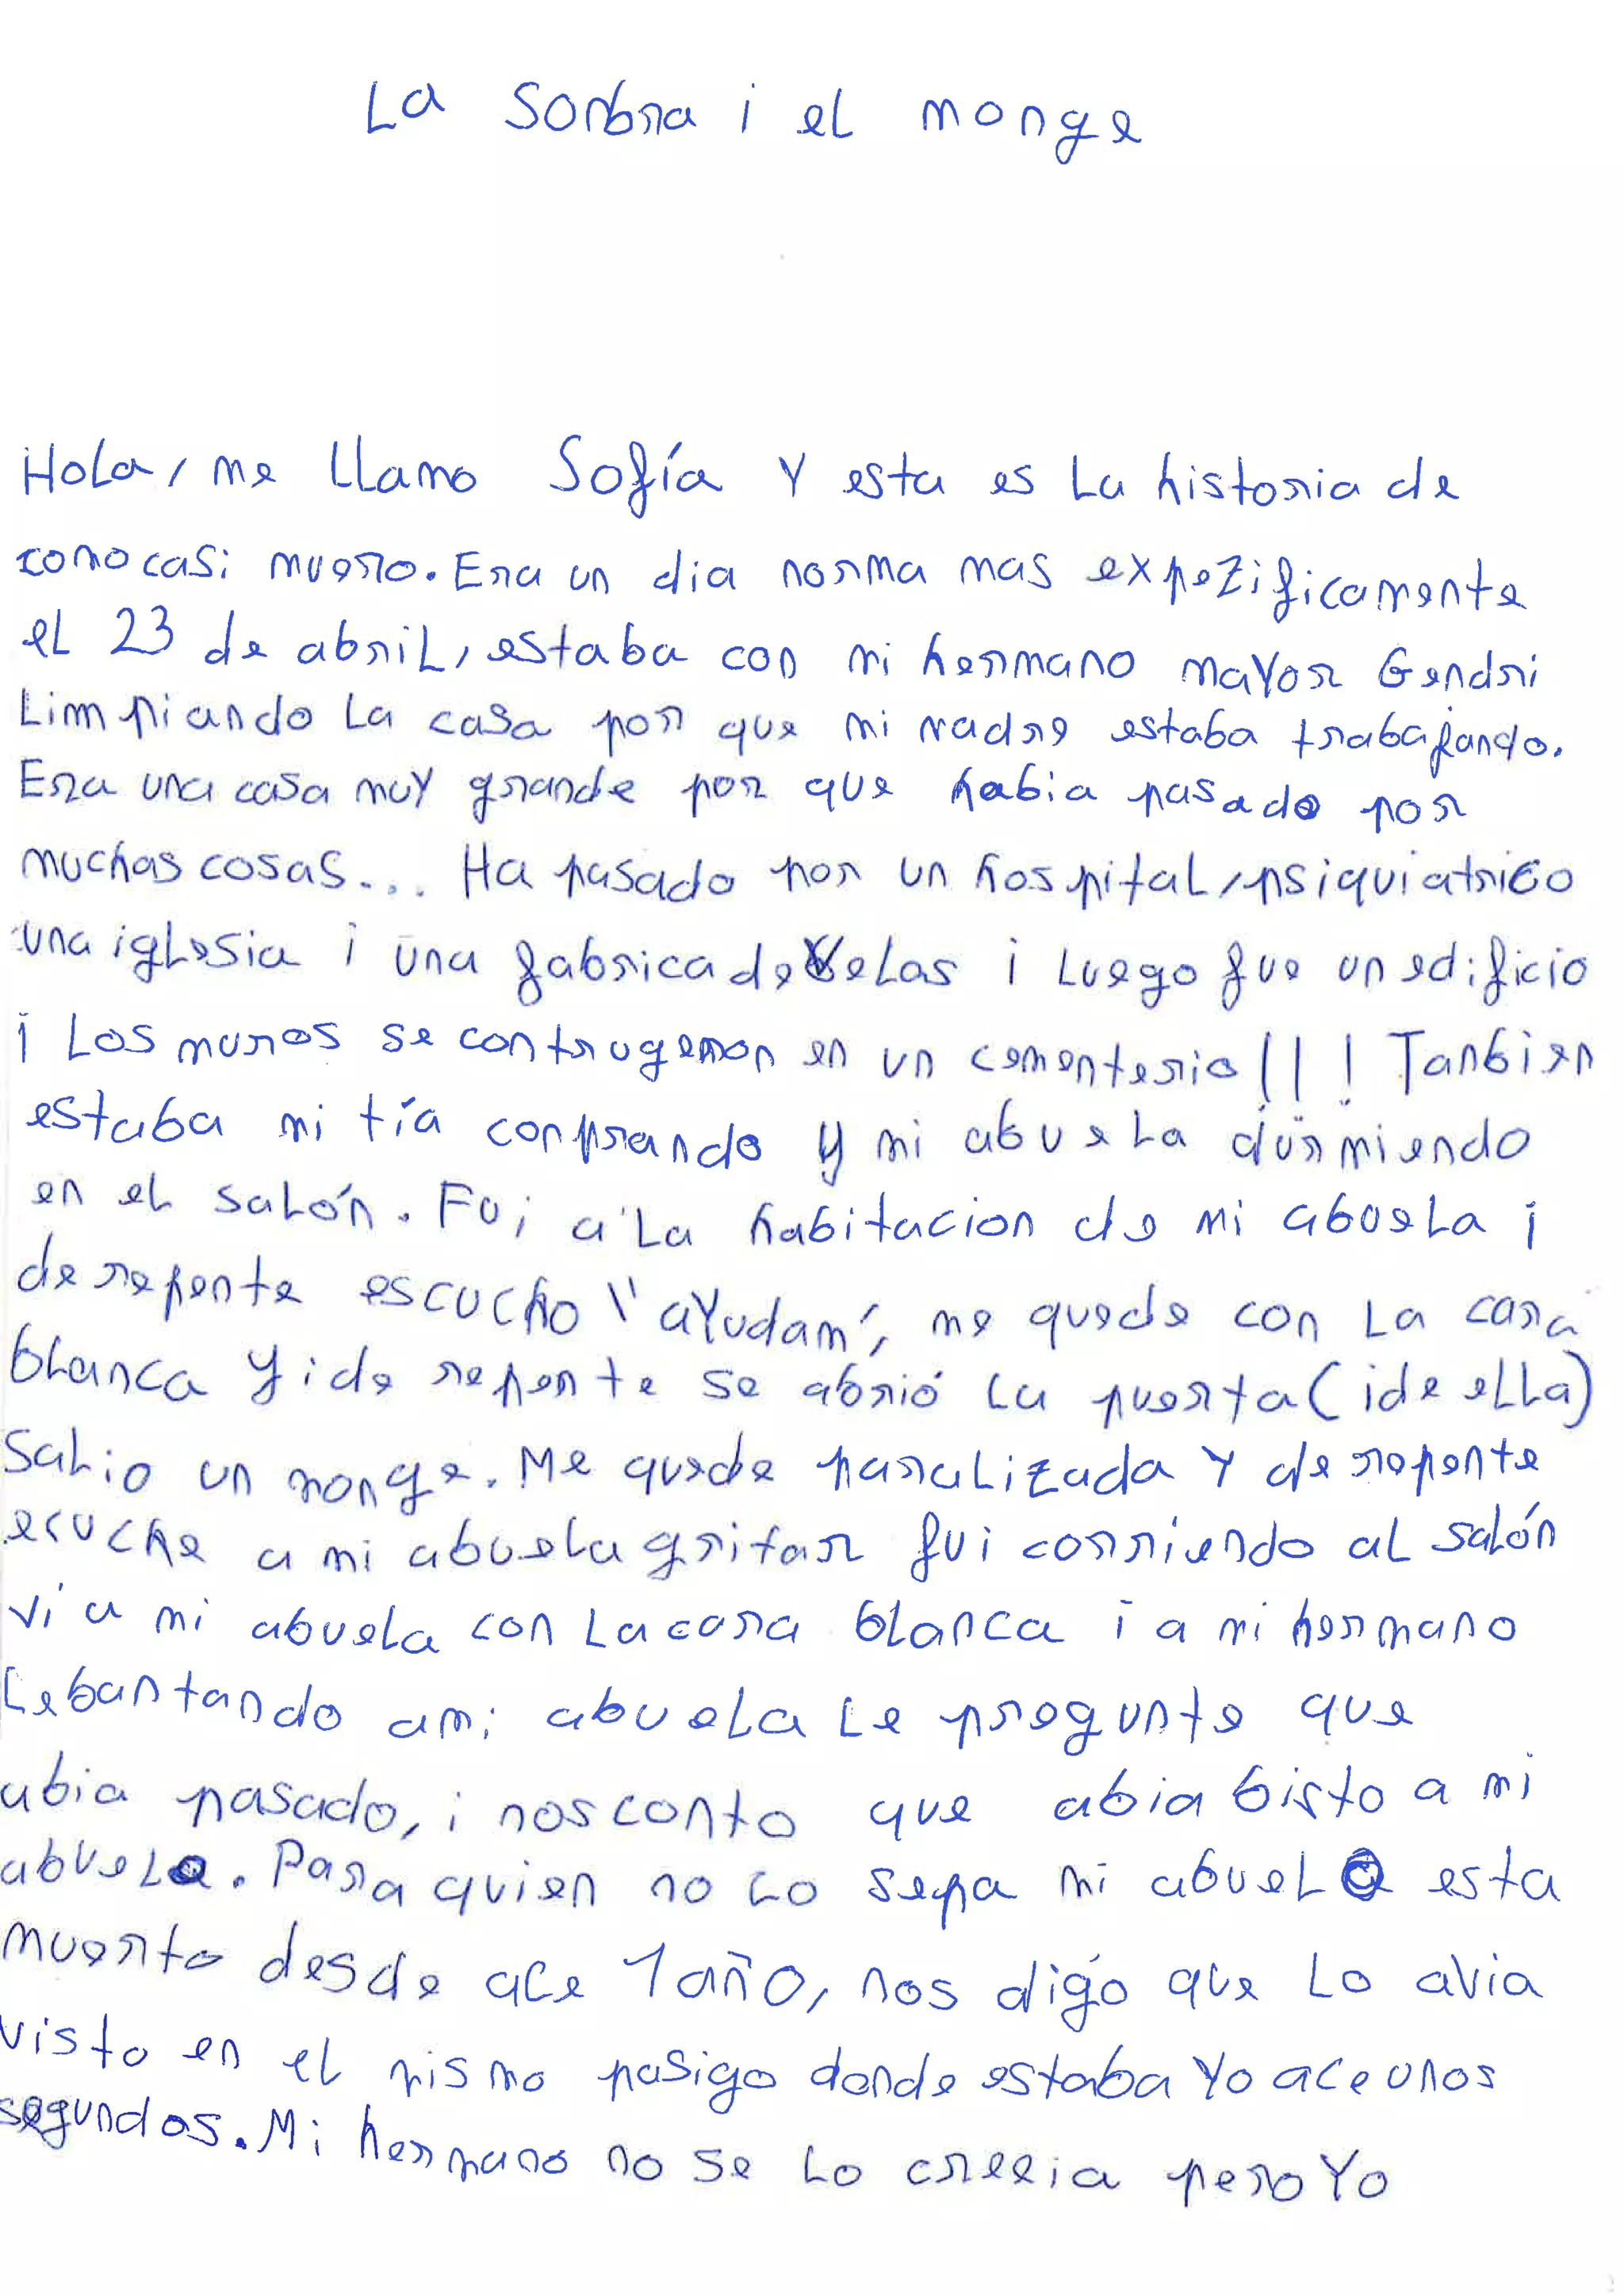 La sonbra i el monge
Hola, me llamo Sofía y esta es la historia de
como casi muero. Era un dia norma mas expezificamente
el 23 de abril, estaba con mi hermano mayor Gendri
Limpiando la casa por que mi madre estaba trabajando.
Era una casa muy grande por que habia pasado por
muchas cosas... Ha pasado por un hospital, psiquiatrico
una iglesia i una fabrica de velas i luego fue un edificio
i los muros se contrugeron en un cementerio!!! Tanbien
estaba mi tía conprando y mi abuela durmiendo
en el salón. Fui a la habitacion de mi abuela i
de repente escucho "ayudam", me quede con la cara
blanca y i de repente se abrió la puerta (i de ella)
Salio un monge. Me quede paralizada y de repente
ecuche a mi abuela gritar fui corriendo al salón
vi a mi abuela con la cara blanca i a mi hermano
Lebantando a mi abuela le pregunte que
abia pasado, i nos conto que abia bisto a mi
abuelo. Para quien no lo sepa mi abuelo esta
muerto desde ace 1 año, nos digo que lo avia
visto en el mismo pasigo donde estaba yo ace unos
segundos. Mi hermano no se lo creeia pero yo